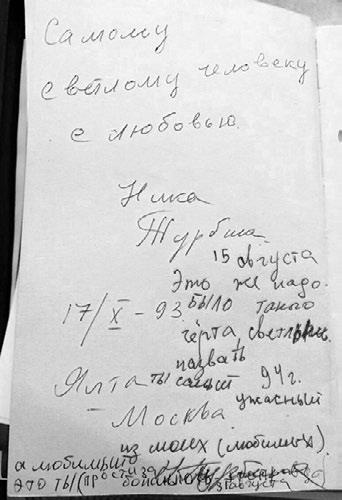 Самому
светлому человеку
с любовью.
Ника
Турбина
15 августа
Это же надо
17/X - 93 было такого
чёрта, светлым
назвать
Ялта ты самый 94 г.
- Москва ужасный
из моих (любимых).
а любимый
это ты (прости за
августа